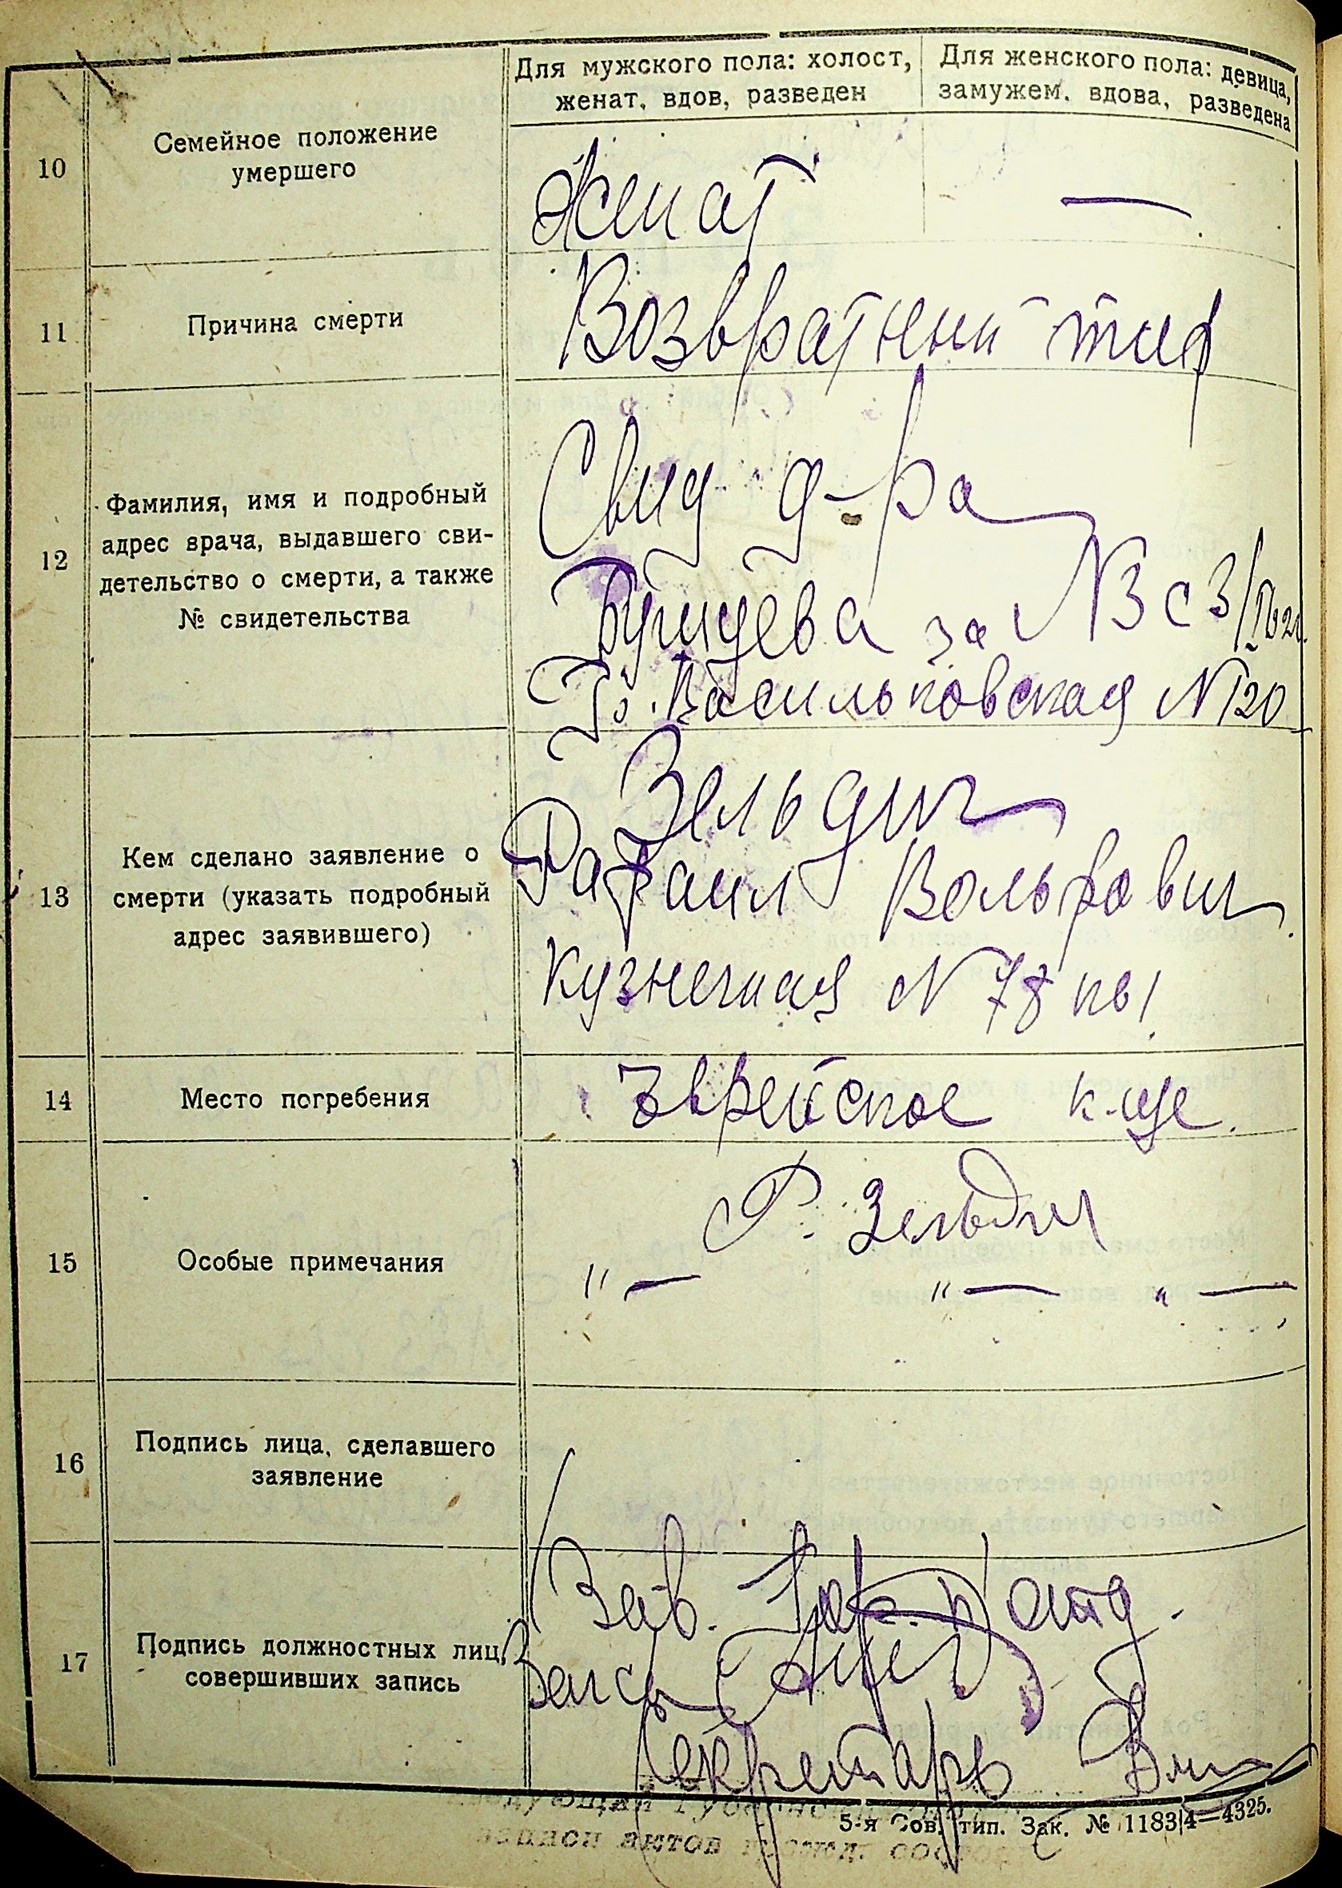 Для мужского пола: холост,
женат, вдов, разведен
Для женского пола: девица,
замужем, вдова, разведена
10
Семейное положение
умершего
Женат
—
11
Причина смерти
Возвратный тиф
12
Фамилия, имя и подробный
адрес врача, выдавшего сви-
детельство о смерти, а также
№ свидетельства
Свид д-ра
за N3 с 3/
Б. Васильковская N 120
13
Кем сделано заявление о
смерти (указать подробный
адрес заявившего)
Зельдин
Рафаил Вольфович
Кузнечная N 78 кв 1
14
Место погребения
Еврейское к-ще.
15
Особые примечания
Р. Зельдин
"— "— "—
16
Подпись лица, сделавшего
заявление
17
Подпись должностных лиц,
совершивших запись
Зав.
Загса
Секретарь
5-я Сов. тип. Зак. № 1183|4—4325.